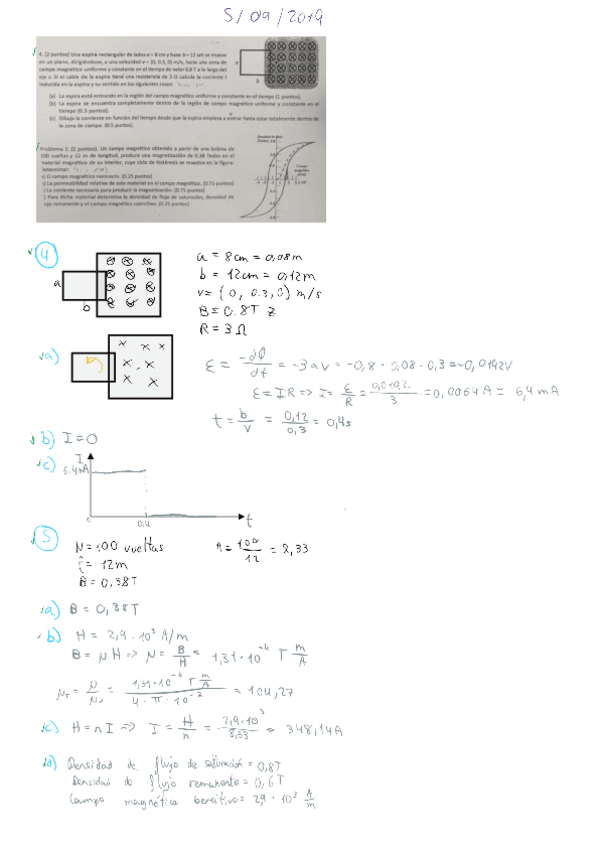 5/09/2019
4. (2 puntos) Una espira rectangular de lados a = 8 cm y base b = 12 cm se mueve
en un plano, dirigiéndose, a una velocidad v = (0, 0.3, 0) m/s, hacia una zona de
campo magnético uniforme y constante en el tiempo de valor 0.8 T a lo largo del
eje z. Si el cable de la espira tiene una resistencia de 3 Ω calcule la corriente I
inducida en la espira y su sentido en los siguientes casos:
(a) La espira está entrando en la región del campo magnético uniforme y constante en el tiempo (1 puntos).
(b) La espira se encuentra completamente dentro de la región de campo magnético uniforme y constante en el
tiempo (0.5 puntos).
(c) Dibuja la corriente en función del tiempo desde que la espira empieza a entrar hasta estar totalmente dentro de
la zona de campo. (0.5 puntos).
Problema 5. (2 puntos). Un campo magnético obtenido a partir de una bobina de
100 vueltas y 12 m de longitud, produce una magnetización de 0.38 Teslas en el
material magnético de su interior, cuyo ciclo de histéresis se muestra en la figura.
Determinar:
) El campo magnético necesario. (0.25 puntos)
) La permeabilidad relativa de este material en el campo magnético. (0.75 puntos)
) La corriente necesaria para producir la magnetización. (0.75 puntos)
) Para dicho material determina la densidad de flujo de saturación, densidad de
ujo remanente y el campo magnético coercitivo. (0.25 puntos)
4
a
b
a = 8cm = 0,08m
b = 12cm = 0,12m
v = (0, 0.3, 0) m/s
B = 0.8T z
R = 3 Ω
a)
ε = -dΦ/dt = -B a v = -0,8 · 0,08 · 0,3 = -0,0192V
ε = IR => I = ε/R = 0,0192/3 = 0,0064 A = 6,4 mA
t = b/v = 0,12/0,3 = 0,4s
b) I = 0
c)
I
6.4mA
0
0,4
t
5
N = 100 vueltas
n = 100/12 = 8,33
l = 12m
B = 0,38T
a) B = 0,38T
b) H = 2,9 · 10³ A/m
B = μ H => μ = B/H = 1,31 · 10⁻⁴ T m/A
μr = μ/μ₀ = 1,31·10⁻⁴ T m/A / 4 · π · 10⁻⁷ = 104,27
c) H = n I => I = H/n = 2,9·10³/8,33 = 348,14A
d) Densidad de flujo de saturación = 0,8T
Densidad de flujo remanente = 0,6T
Campo magnético coercitivo = 2,9 · 10³ A/m